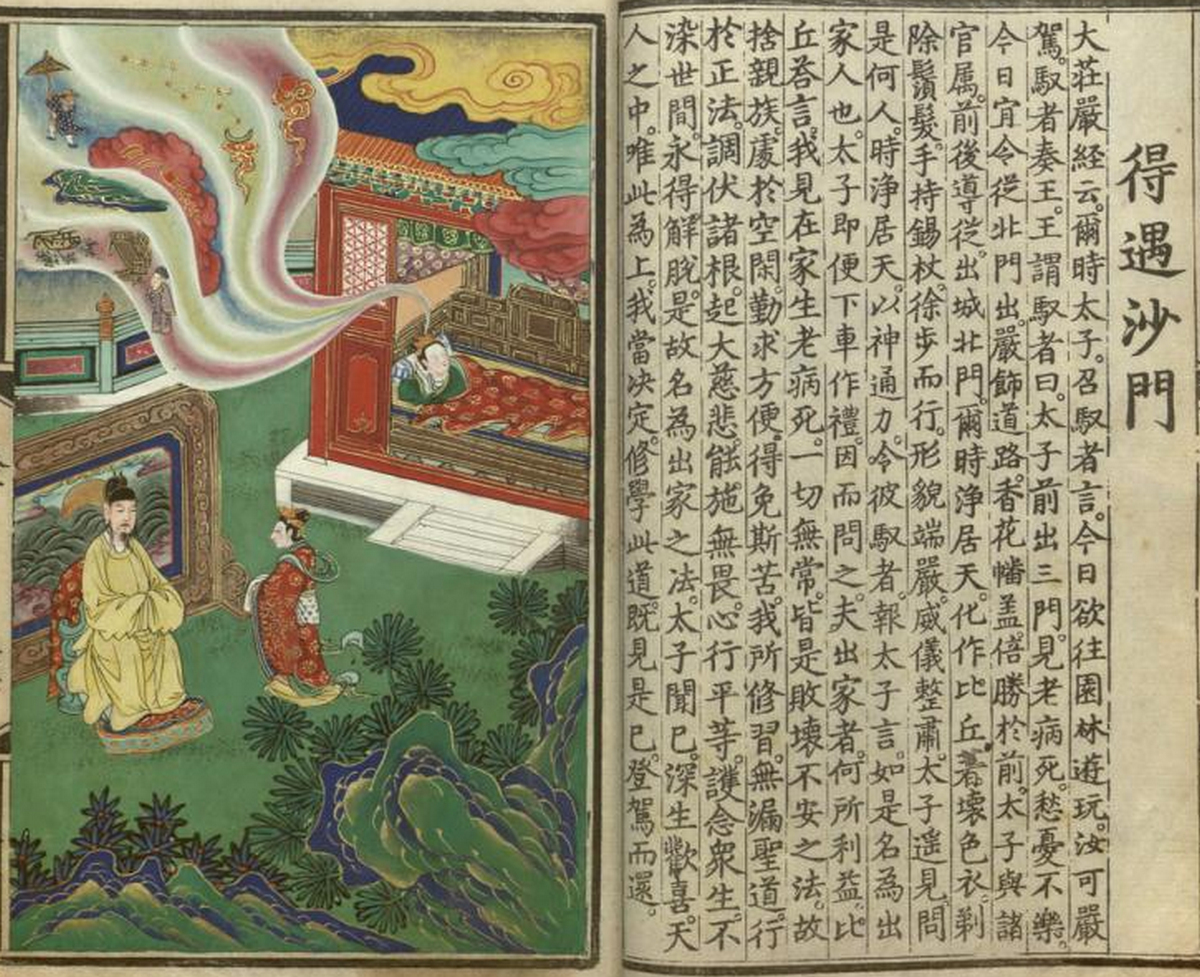 得遇沙門
大莊嚴経云。爾時太子。召馭者言。今日欲往園林遊玩。汝可嚴
駕。馭者奏王。王謂馭者曰。太子前出三門。見老病死。愁憂不樂。
今日宜令從北門出。嚴飾道路。香花幡盖。倍勝於前。太子與諸
官属。前後導從。出城北門。爾時浄居天。化作比丘。着壊色衣。剃
除鬚髮。手持錫杖。徐步而行。形貌端嚴。威儀整肅。太子遥見。問
是何人。時浄居天。以神通力。令彼馭者。報太子言。如是名為出
家人也。太子即便下車作禮。因而問之。夫出家者。何所利益。比
丘荅言。我見在家生老病死。一切無常。皆是敗壊不安之法。故
捨親族。處於空閑。勤求方便。得免斯苦。我所修習。無漏聖道。行
於正法。調伏諸根。起大慈悲。能施無畏。心行平等。護念衆生。不
染世間。永得解脫。是故名為出家之法。太子聞已。深生歡喜。天
人之中。唯此為上。我當决定。修學此道。既見是已。登駕而還。